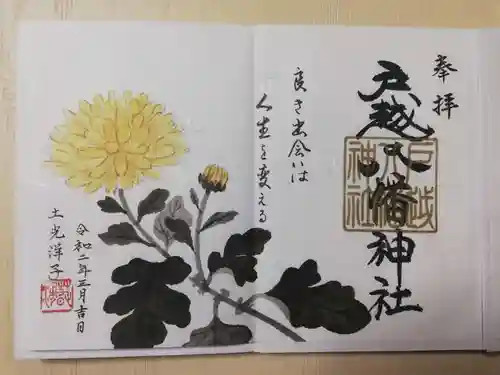 奉拝
戸越八幡神社
戸越
八幡
神社
良き出会いは
人生を変える
令和二年正月吉日
土光洋子